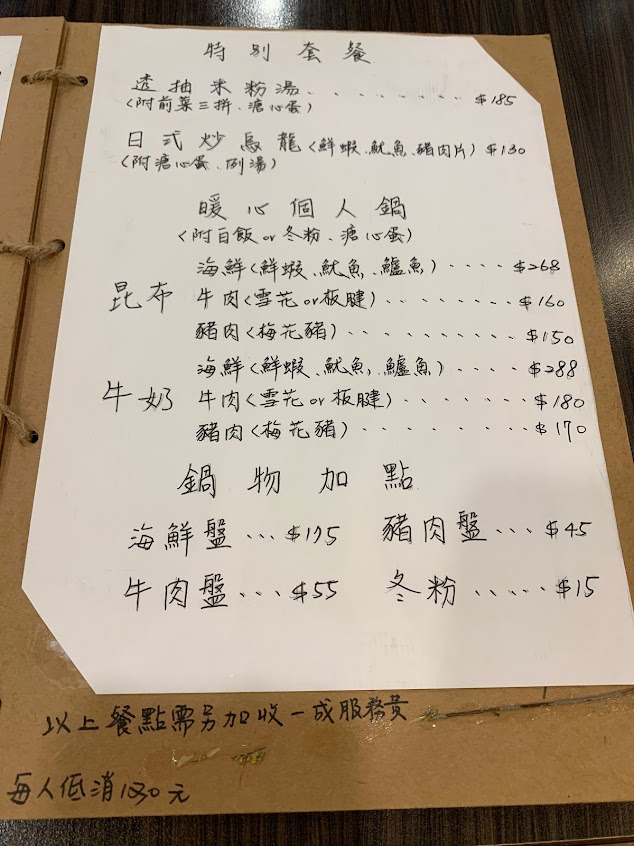 特別套餐
透抽米粉湯......... $185
(附前菜三拼、溏心蛋)
日式炒烏龍(鮮蝦、魷魚、豬肉片) $130
(附溏心蛋、例湯)
暖心個人鍋
(附白飯or冬粉、溏心蛋)
海鮮(鮮蝦、魷魚、鱸魚)....$268
昆布 牛肉(雪花or板腱)........$160
豬肉(梅花豬)..........$150
海鮮(鮮蝦、魷魚、鱸魚)....$288
牛奶 牛肉(雪花or板腱).......$180
豬肉(梅花豬)........$170
鍋物加點
海鮮盤...$175 豬肉盤...$45
牛肉盤...$55 冬粉.....$15
以上餐點需另加收一成服務費
每人低消130元